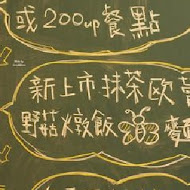 或200up餐點
新上市抹茶欧
野菇燉飯